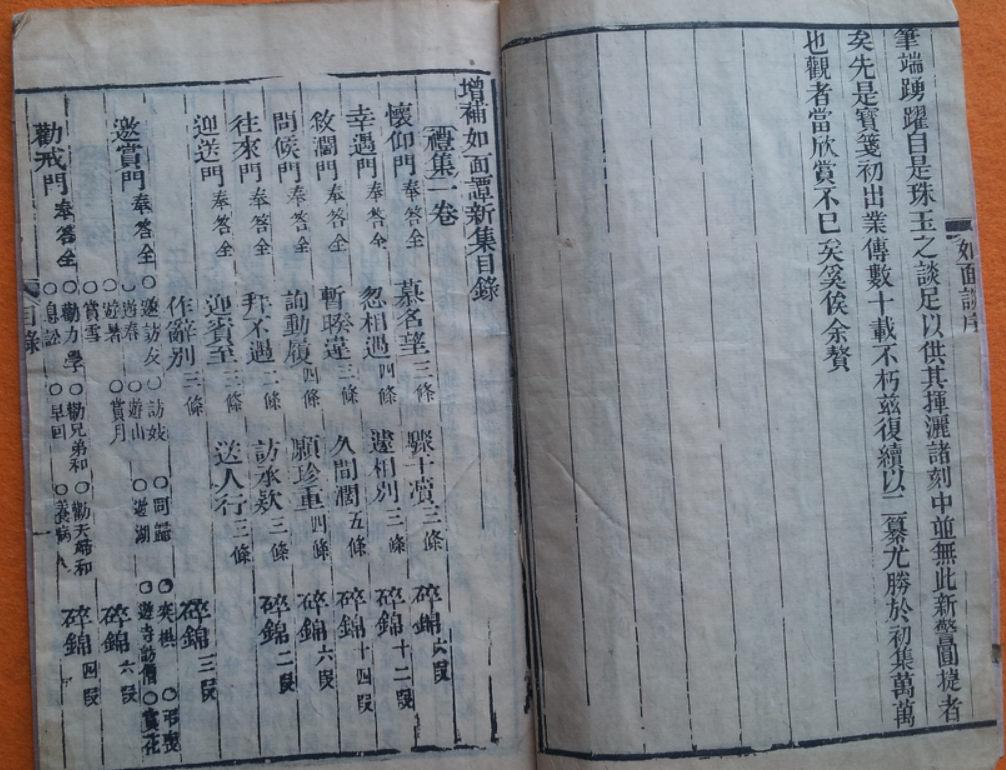 筆端踴躍自是珠玉之談足以供其揮灑諸刻中並無此新警圓捷者
矣先是寶箋初出業傳數十載不朽茲復續以二纂尤勝於初集萬萬
也觀者當欣賞不已矣奚俟余贅
如面談序
增補如面譚新集目錄
禮集一卷
懷仰門奉答全 慕名望三條 驟干瀆三條 碎錦六段
幸遇門奉答全 忽相遇四條 遽相別三條 碎錦十二段
敘濶門奉答全 暫暌違三條 久間濶五條 碎錦十四段
問候門奉答全 詢動履四條 願珍重四條 碎錦六段
往來門奉答全 拜不遇二條 訪承欵三條 碎錦二段
迎送門奉答全 迎賓至三條 送人行三條
作辭別三條 碎錦三段
邀賞門奉答全 ○邀訪友 ○訪妓 ○同遊 ○奕棋 ○弔喪
○遊春 ○遊山 ○遊湖 ○遊寺訪僧 ○賞花
○遊暑 ○賞月
○賞雪 碎錦六段
勸戒門奉答全 ○勸力學 ○勸兄弟和 ○勸夫婦和
○息訟 ○早回 ○養病 碎錦四段
目錄 一